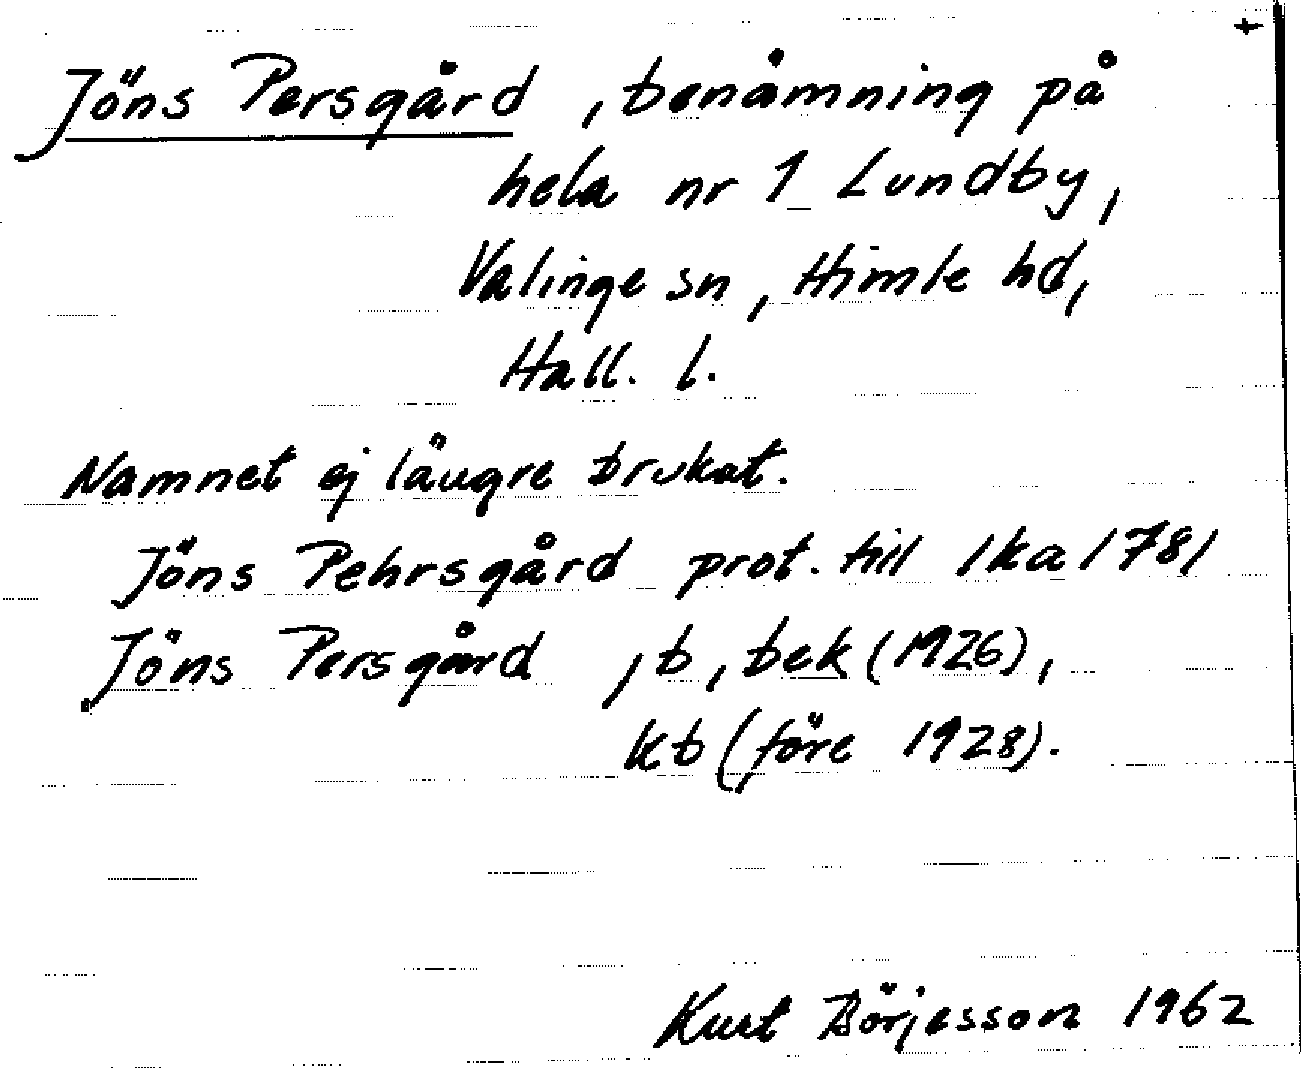 +
Jöns Persgård , benämning på
hela nr 1 Lundby,
Valinge sn, Himle hd,
Hall. l.
Namnet ej längre brukat.
Jöns Pehrsgård prot. till lka 1781
Jöns Persgård , b, bek (1926),
kb (före 1928).
Kurt Börjesson 1962